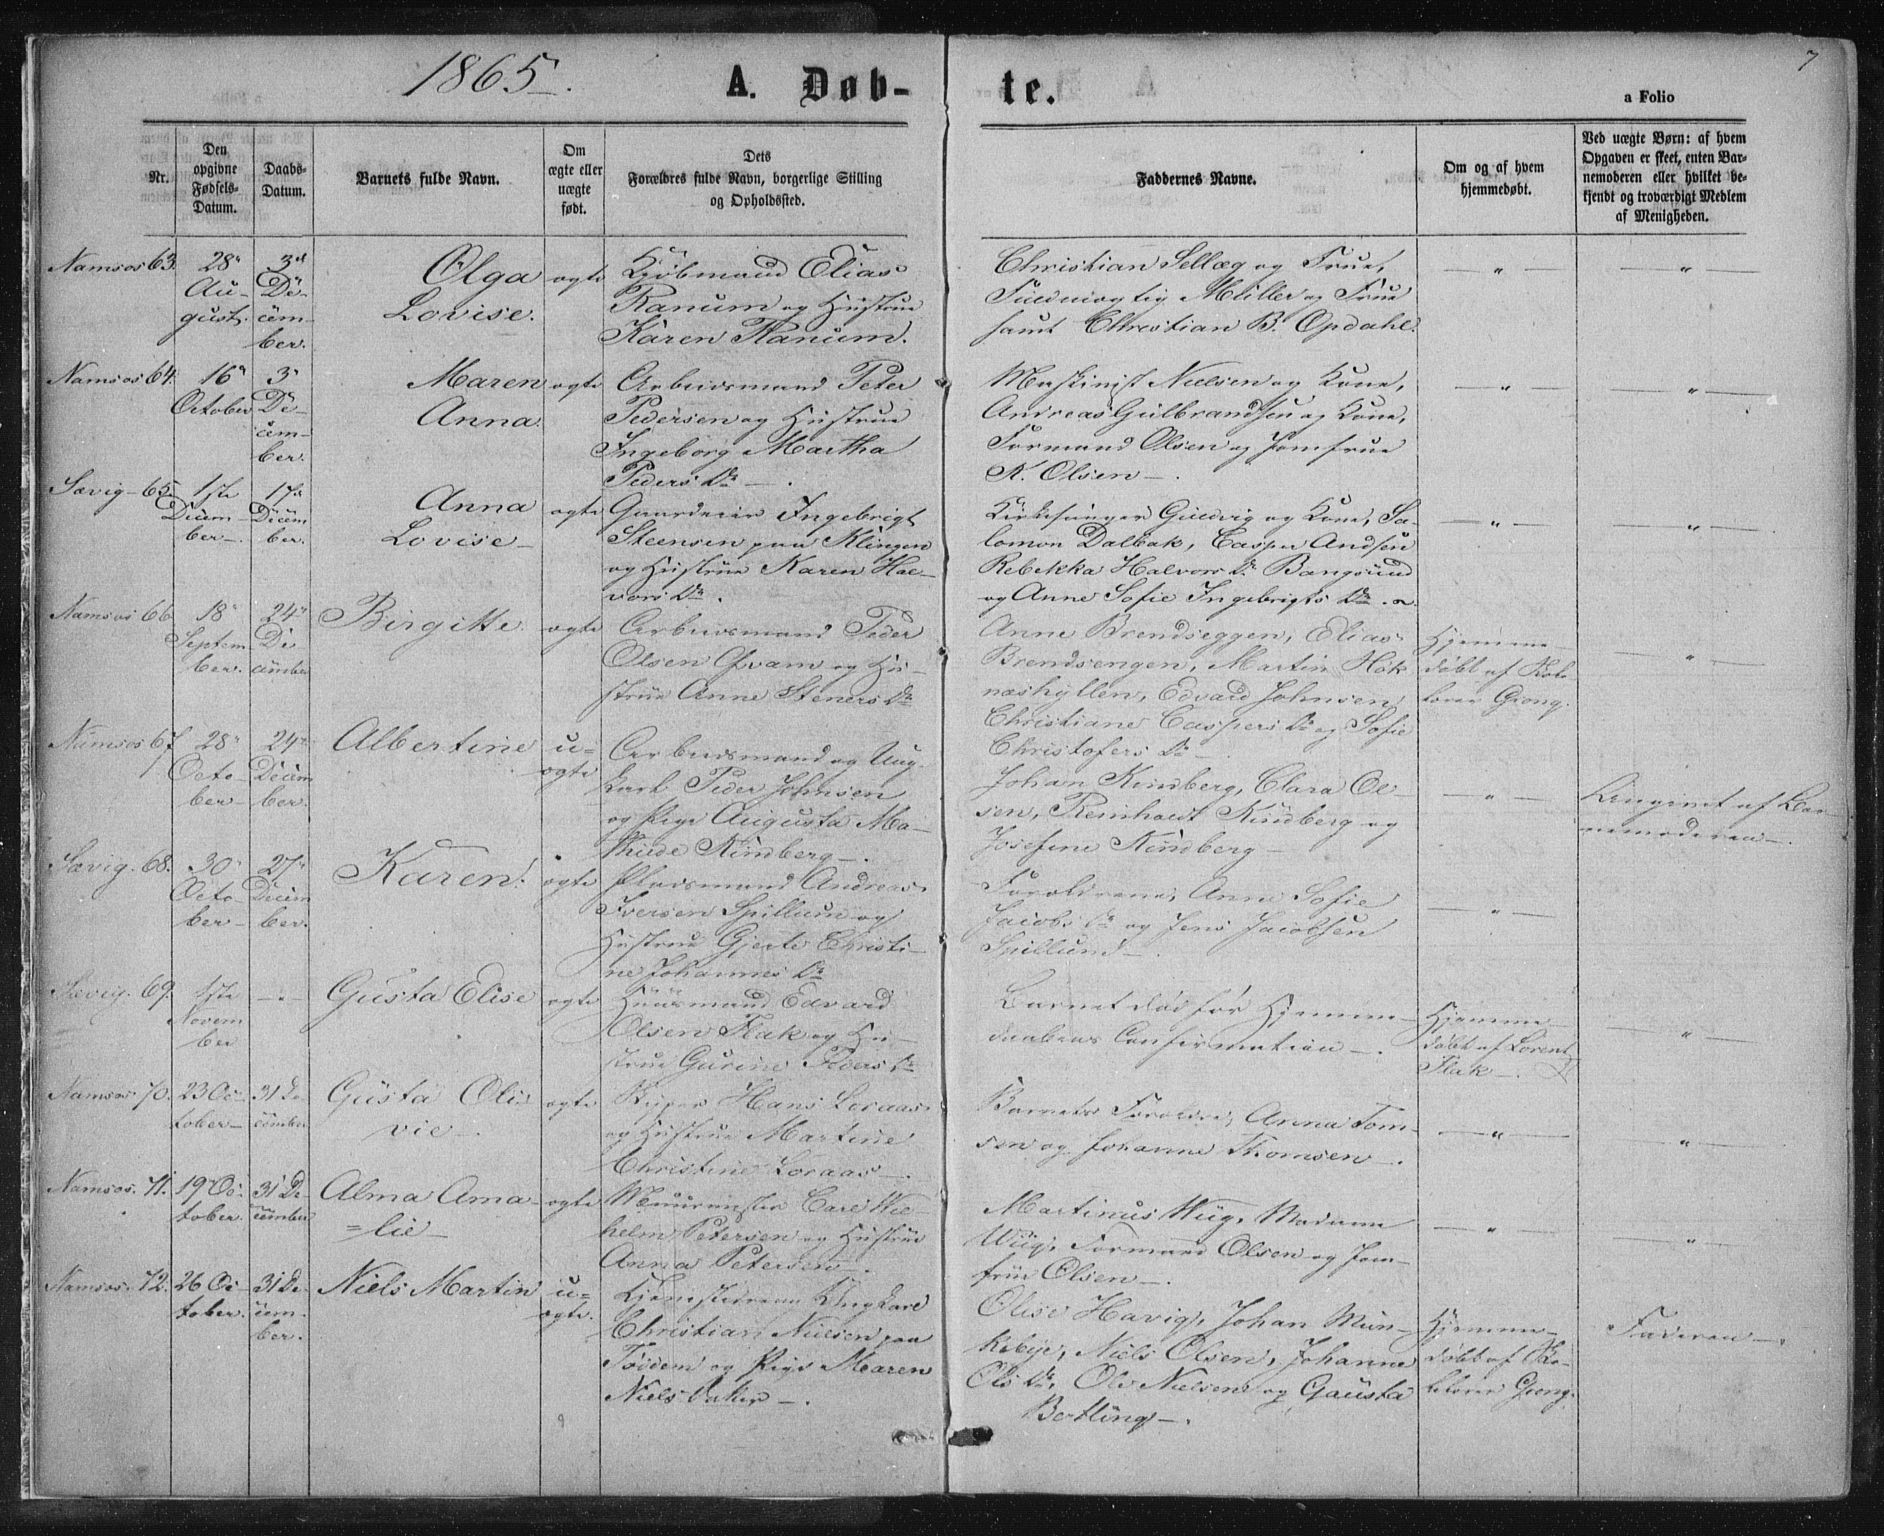 1865.
A. Døb-
te.
a Folio
7
Nr.
Den opgivne Fødsels-Datum.
Daabs-Datum.
Barnets fulde Navn.
Om ægte eller uægte født.
Dets Forældres fulde Navn, borgerlige Stilling og Opholdssted.
Faddernes Navne.
Om og af hvem hjemmedøbt.
Ved uægte Børn: af hvem Opgaven er skeet, enten Barnemoderen eller hvilket bekjendt og troværdigt Medlem af Menigheden.
Namsos 63. 28" August. 3d December.
Olga
Lovise.
ægte
Kjøbmand Elias
Ranum og Hustrue
Karen Ranum.
Christian Sellæg og Frue,
Fuldmægtig Müller og Frue
samt Christian B. Opdahl.
Namsos 64. 16" October 3" December.
Maren
Anna
ægte
Arbeidsmand Peter
Pedersen og Hustrue
Ingeborg Martha
Peders Dr —.
Maskinist Nielsen og Kone,
Andreas Gulbrandsen og Kone,
Formand Olsen og Jomfrue
K. Olsen —.
Sævig 65. 1ste December 17" December.
Anna
Lovise —
ægte
Gaardeier Ingebrigt
Steensen paa Klingen
og Hustrue Karen Hal-
vors Dr.
Kirkesanger Guldvig og Kone, Sa-
lomon Dalbak, Casper Andsen
Rebekka Halvors Dr Bangsund
og Anne Sofie Ingebrigts Dr.
Namsos 66 18" September. 24" December
Birgitte
ægte
Arbeidsmand Peder
Olsen Qvam og Hu-
strue Anne Steners Dr
Anne Brendseggen, Elias
Brendsengen, Martin Høk
næshyllen, Edvard Johnsen,
Christiane Caspers Dr og Sofie
Christofers Dr —
Hjemme
døbt af
Giong.
Namsos 67 28" October 24" December.
Albertine
u-
ægte
Arbeidsmand og Ung
karl Peder Johnsen
og Pige Augusta Ma-
thilde Kindberg —.
Johan Kindberg, Clara Ol-
sen, Reinhart Kindberg og
Josefine Kindberg —
Angivet af Bar-
nemoderen —.
Sævig. 68. 30" October 27" December.
Karen.
ægte
Pladsmand Andreas
Iversen Spillum og
Hustrue Gjerte Christi-
ne Johannes Dr
Forældrene, Anne Sofie
Jacobs Dr og Jens Jacobsen
Spillum —.
Sævig. 69. 1ste November
Gusta Elise
ægte
Huusmand Edvard
Olsen Flak og Hu-
strue Gurine Peders Dr
Barnet død før Hjemme-
daabens Confirmation —.
Hjemme-
døbt af Lorents
Flak —.
Namsos. 70. 23 Oc-
tober — 31 De-
cember
Gusta Oli-
vie —.
ægte
Hans Loraas
og Hustrue Martine
Christine Loraas —.
Barnets Forældre, Anna Tom-
sen og Johanne Thomsen —.
Namsos. 71. 19 Oc-
tober. 31 De-
cember
Alma Ama-
lie —
ægte
Muurmester Carl Wil-
helm Petersen og Hustrue
Anna Petersen —.
Martinus Wiig, Madame
Wiig, Formand Olsen og Jom-
frue Olsen —.
Namsos. 72. 26 Oc-
tober. 31 De-
cem-
ber.
Niels Martin
u-
ægte.
Ungkarl
Christian Nielsen paa
og Pige Maren
Niels Datter —.
Olise Havig, Johan Mun-
kebye, Niels Olsen, Johanne
Ols Dr, Ole Nielsen og Gausta
Bertling —.
Hjemme-
døbt af
Giong.
Faderen —.